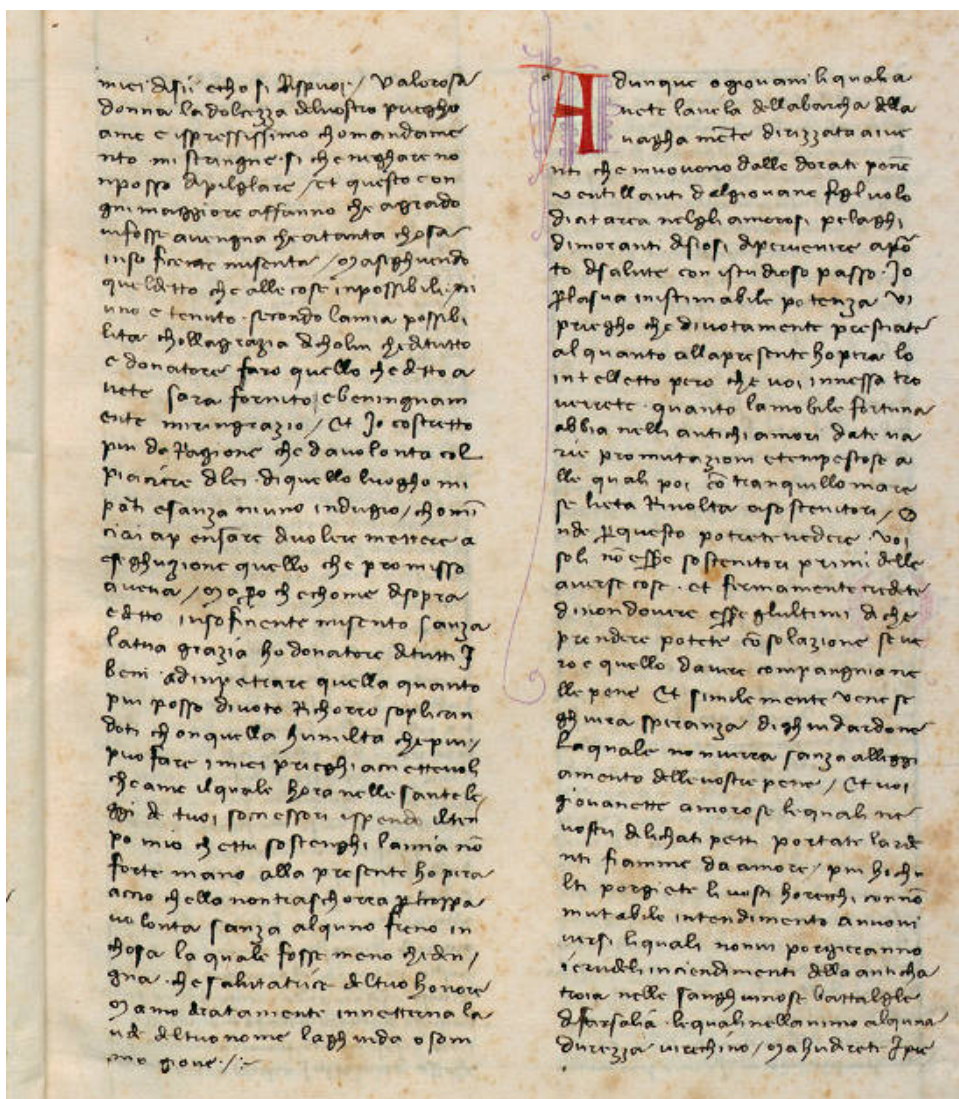 miei disii echo si rispuosi / Valorosa
donna la dolcezza delvostro priegho
ame e ispressissimo chomandame
nto mi stringne si che neghare no
nposso dipilglare / et questo con
gni maggiore affanno che agrado
vifosse avengna cheatanta chosa
inso ficente misenta / Masighuendo
queldetto che alle cose inpossibili ni
uno e tenuto. secondo lamia possibi
lita chollagrazia dicholui cheditutto
e donatore faro quello chedetto a
vete sara fornito ebeningnam
ente miringrazio / Et Io costretto
piu da Ragione che davolonta col
piacere dilei. diquello luogho mi
parti esanza niuno indugio / chomī
ciai ap ensare divolere mettere a
eseghuzione quello che promisso
avena / Mapō chechome disopra
edetto insoficiente misento sanza
latua grazia ho donatore ditutti I
beni adinpetrare quella quanto
piu posso divoto Richorro soplican
doti chonquella humilta chepiu /
puo fare imiei prieghi acciettevoli
cheame ilquale hora nelle santele
ggi de tuoi sociessori ispendo ilten
po mio chettu sostenghi lamia nō
forte mano alla presente hopera
accio chello nontraschorra p troppa
volonta sanza alquno freno in
chosa la quale fosse meno cheden /
gna. che salutatrice deltuo honore
Mamo deratamente innetterna la
ude deltuonome laghuida osom
mo giove. /:~
Adunque ogiovani liquali a
vete lavela dellabarcha della
vagha mēte dirizzata aive
nti che muovono dalle dorati pene
ventillanti delgiovane figluolo
dicitarea nelgli amorosi pelaghi
dimoranti disiosi dipervenire apō
to disalute con istudioso passo. Io
plasua inistimabile potenza vi
priegho che divotamente prestiate
alquanto allapresente hopera lo
intelletto pero che voi innessa tro
verrete. quanto lamobile fortuna
abbia nelli antichi amori date va
rie promutazioni etempestose a
lle quali poi cō tranquillo mare
se lieta Rivolta aisostenitori / O
nde pquesto potretevedere voi
soli nō esse sostenitori primi delle
averse cose. et fermamente credete
dinondovere esse glultimi diche
prendere potete cōsolazione seve
ro e quello davere compangnia ne
lle pene Et similemente vene se
ghuira speranza dighuidardone
laquale nonverra sanza alleggi
amento dellevostre pene / Et voi
giovanette amorose lequali ne
vostri dilichati petti portate larde
nti fiamme da amore / piu hichu
lti porgiete livosti horecchi connō
mutabile intendimento anuovi
versi liquali nonvi porgieranno
icrudeli inciendimenti della anticha
troia nelle sanghuinose battalgle
difarsalia. lequali nellanimo alquna
durezza virechino / Mahudreti Ipie